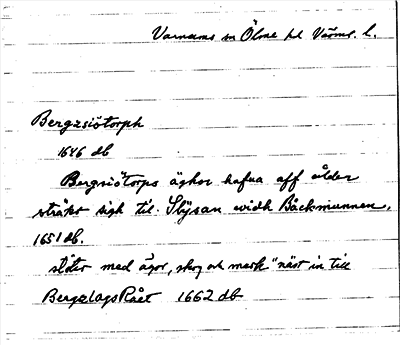 Varnums sn Ölme hd Värml. l.
Bergzsiötorph
1646 db
Bergsiötorps ägher hafua aff ålder
sträkt sigh til Slÿsan widh Bäckmunnen,
1651 db.
stöter med ägor, skog och mark "näst in till
BergzlagsRået 1662 db